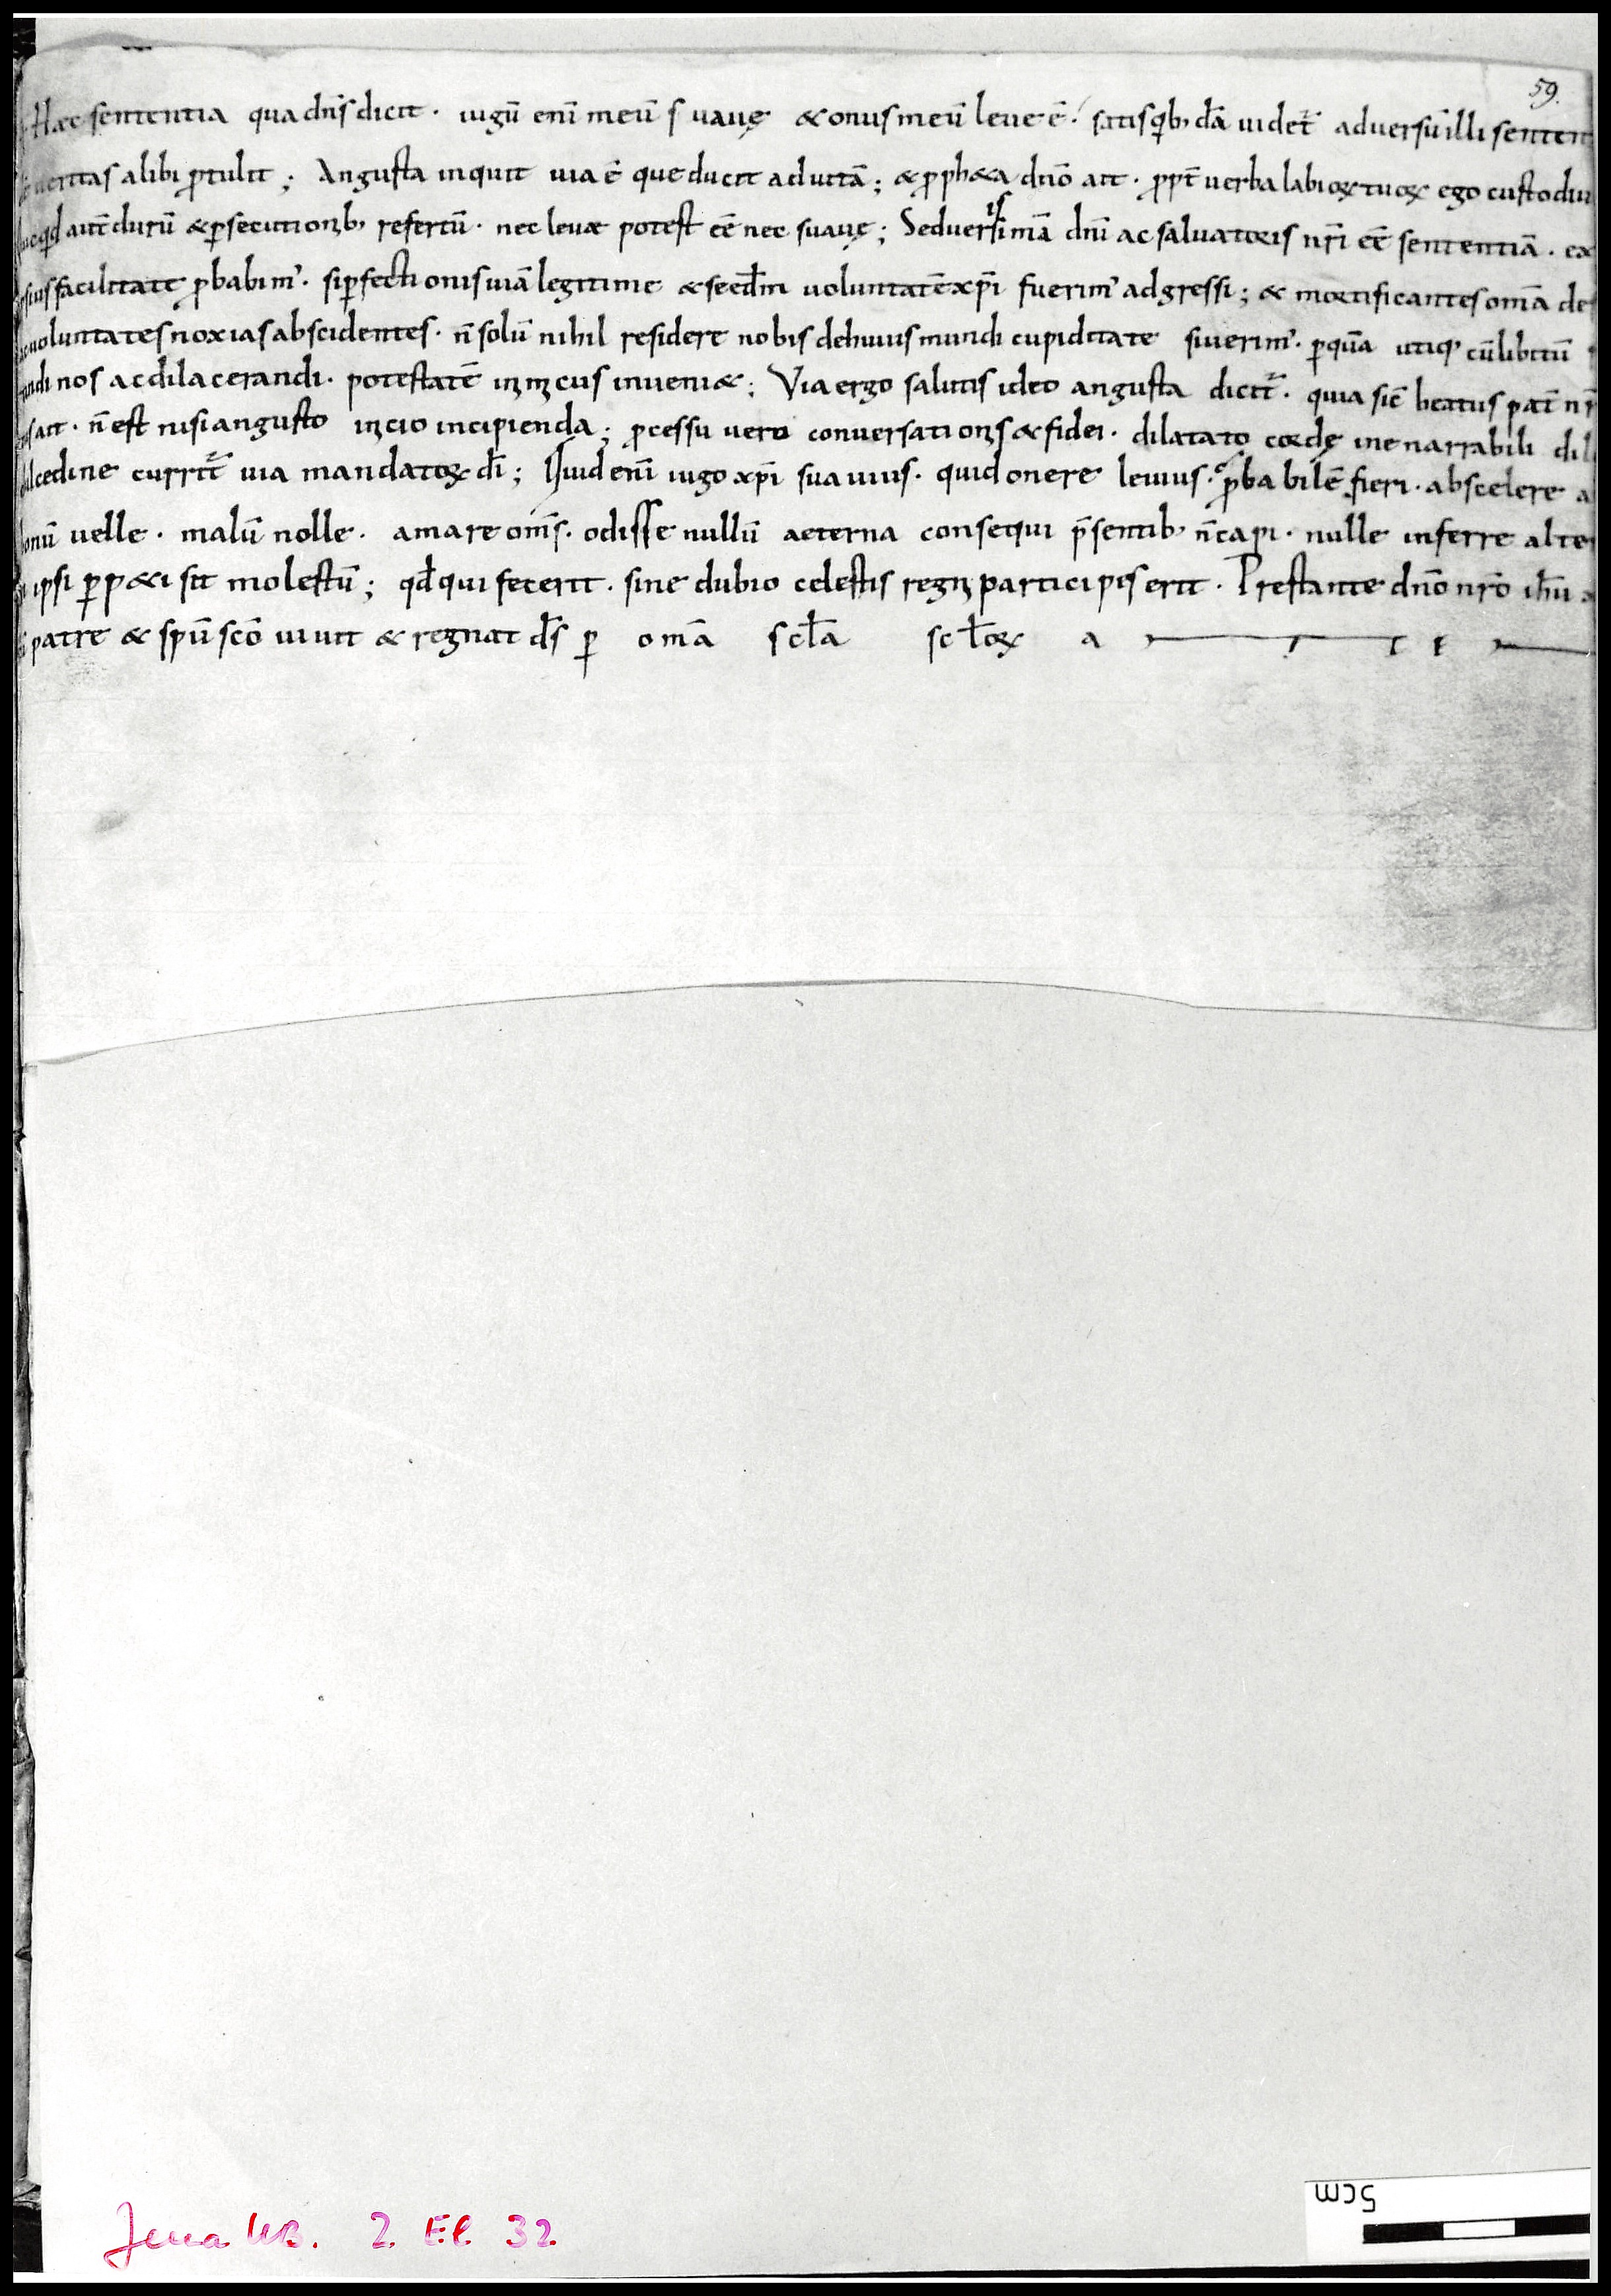 59.
Haec sententia qua dn̄s dicit · iugū enī meū suauę & onus meū leue ē · satis q̄ib; dā uidet̄ aduersū illi senten
ueritas alibi ꝓtulit ; Angusta inquit uia ē que ducit ad uitā ; & ꝓph&a dn̄o ait · ꝓpt̄ uerba labioꝝ tuoꝝ ego custodiu
aut̄ durū & ꝑsecutionib; refertū · nec leuae potest eē nec suauę ; Sed uerissimā dn̄i ac saluatoris nr̄i eē sententiā · ea
facilitate ꝓbabim' · si ꝑfectionis uiā legitime & secd̄m uoluntatē xp̄i fuerim' adgressi ; & mortificantes om̄a de
uoluntates noxias abscidentes · n̄ solū nihil residere nobis de huius mundi cupiditate siuerim' · ꝑ quā utiq; cū libitū
nos ac dilacerandi · potestatē inimicus inueni& ; Via ergo salutis ideo angusta dicit̄ · quia sic̄ beatus pat̄ nr̄
ait · n̄ est nisi angusto inicio incipienda ; ꝓcessu uero conuersationis & fidei · dilatato cordę inenarrabili dil
dulcedine currit̄ uia mandatoꝝ dī ; Quid enī iugo xp̄i suauius · quid onere leuius · ꝓbabilē fieri · a bscelere a
bonū uelle · malū nolle · amare om̄s · odisse nullū aeterna consequi p̄sentib; n̄ capi · nulle inferre alte
ipsi ꝑp&i sit molestū ; qd̄ qui fecerit · sine dubio celestis regni particip̄s erit · Prestante dn̄o nr̄o ih̄u
patre & sp̄u scō uiuit & regnat d̄s ꝑ om̄a scl̄a scl̄oꝝ a
5cm
Jena UB. 2. El 32